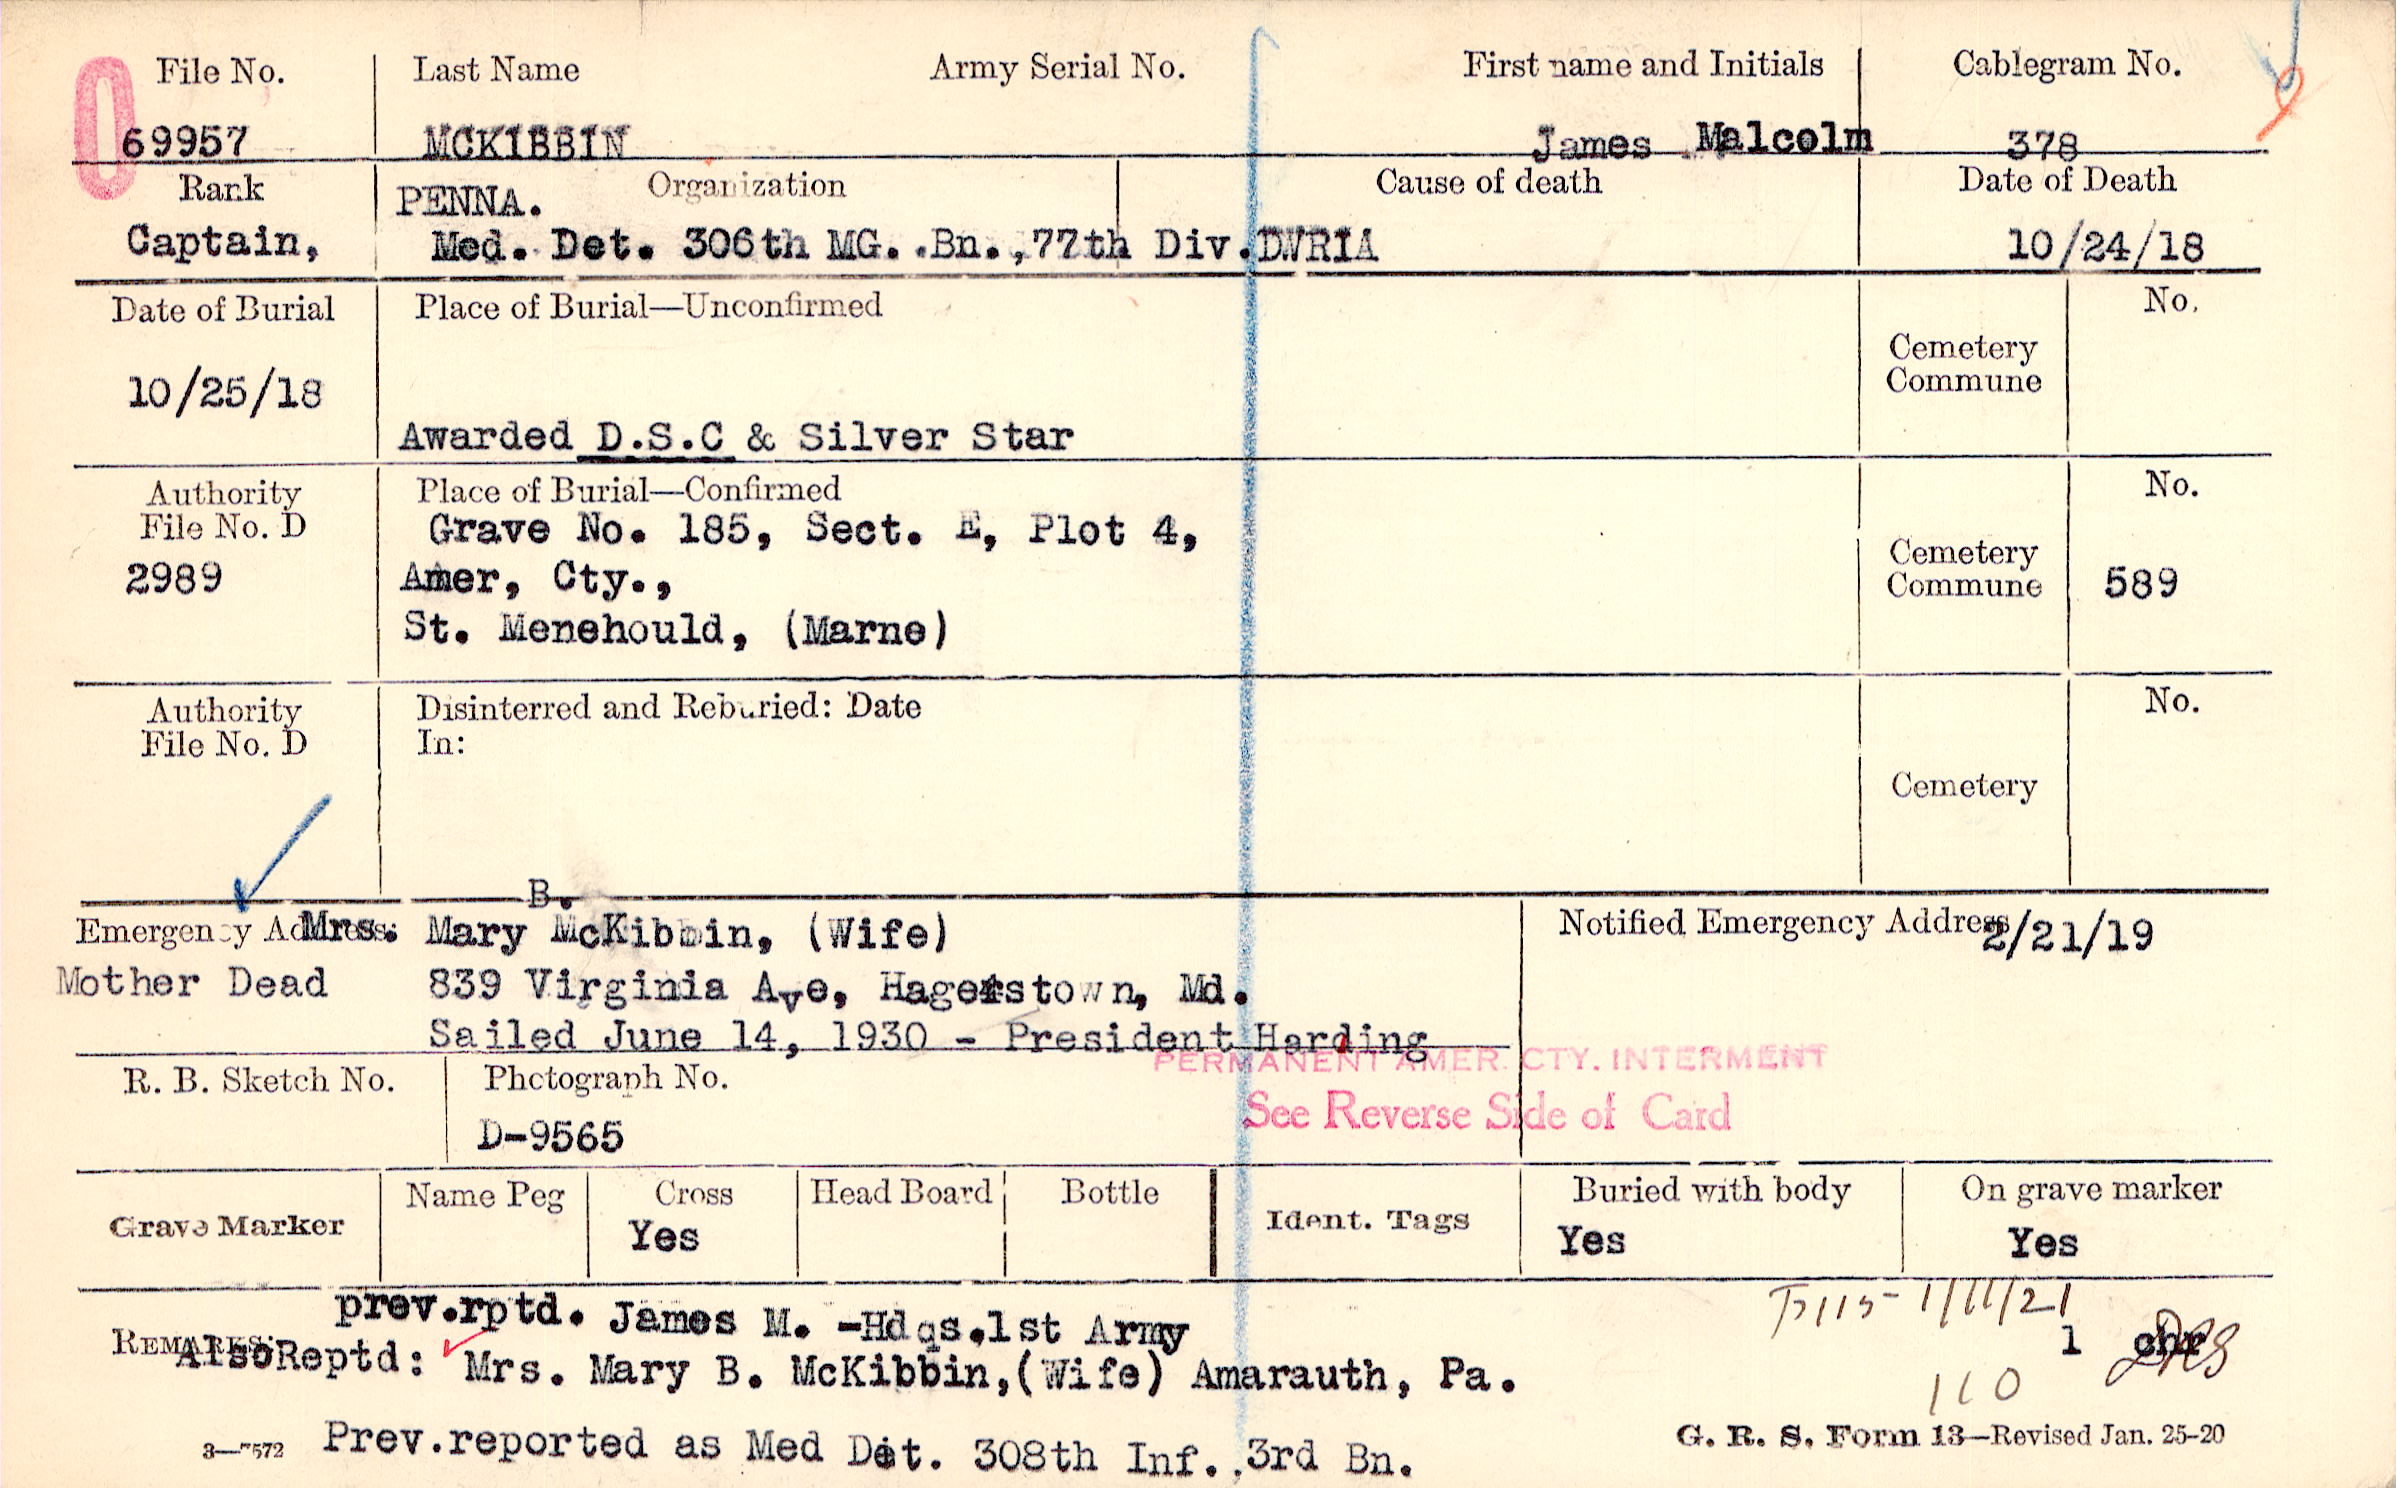 0
File No. Last Name Army Serial No. First name and Initials Cablegram No.
69957 MCKIBBIN James Malcolm 378
Rank PENNA. Organization Cause of death Date of Death
Captain, Med. Det. 306th MG. .Bn.,77th Div. DWRIA 10/24/18
Date of Burial Place of Burial—Unconfirmed No.
Cemetery
Commune
10/25/18
Awarded D.S.C & Silver Star
Authority Place of Burial—Confirmed No.
File No. D Grave No. 185, Sect. E, Plot 4,
Cemetery
2989 Amer, Cty., Commune 589
St. Menehould, (Marne)
Authority Disinterred and Reburied: Date No.
File No. D In:
Cemetery
B.
Emergency Address: Mrs. Mary McKibbin, (Wife) Notified Emergency Address 2/21/19
Mother Dead 839 Virginia Ave, Hagerstown, Md.
Sailed June 14, 1930 - President Harding
PERMANENT AMER. CTY. INTERMENT
R. B. Sketch No. Photograph No.
See Reverse Side of Card
D-9565
Name Peg Cross Head Board Bottle Buried with body On grave marker
Grave Marker Yes Ident. Tags Yes Yes
prev.rptd. James M. -Hdqs.1st Army 1/11/21
REMARKS: Also Reptd: Mrs. Mary B. McKibbin,(Wife) Amarauth, Pa. 1 chr
110
3—7572 Prev.reported as Med Det. 308th Inf.,3rd Bn. G. R. S. Form 13—Revised Jan. 25-20